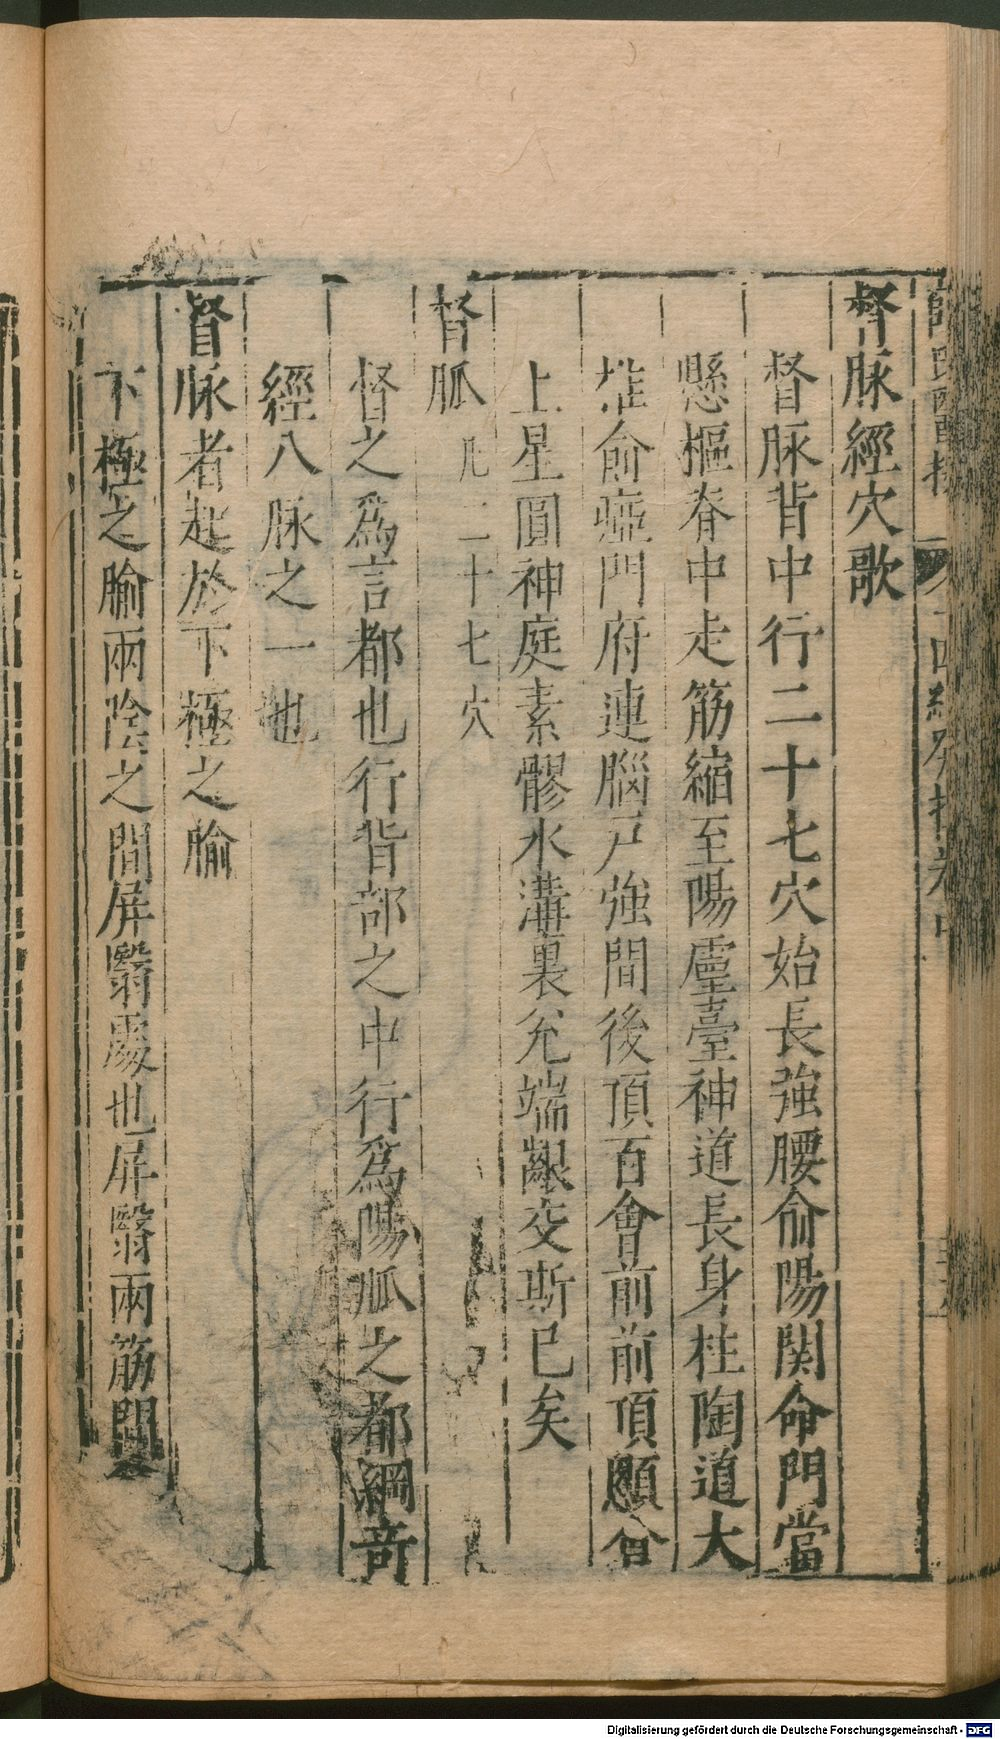 薛氏醫按 十四經發揮卷中
督脉經穴歌
督脉背中行二十七穴始長強腰俞陽関命門當
懸樞脊中走筋縮至陽靈臺神道長身柱陶道大
椎俞瘂門府連腦戸強間後頂百會前前頂顖會
上星圓神庭素髎水溝裏兊端齦交斯已矣
督脈 凡二十七穴
督之爲言都也行背部之中行爲陽脈之都綱竒
經八脉之一也
督脉者起於下極之腧
下極之腧兩陰之間屏翳處也屏翳兩筋間
Digitalisierung gefördert durch die Deutsche Forschungsgemeinschaft - DFG